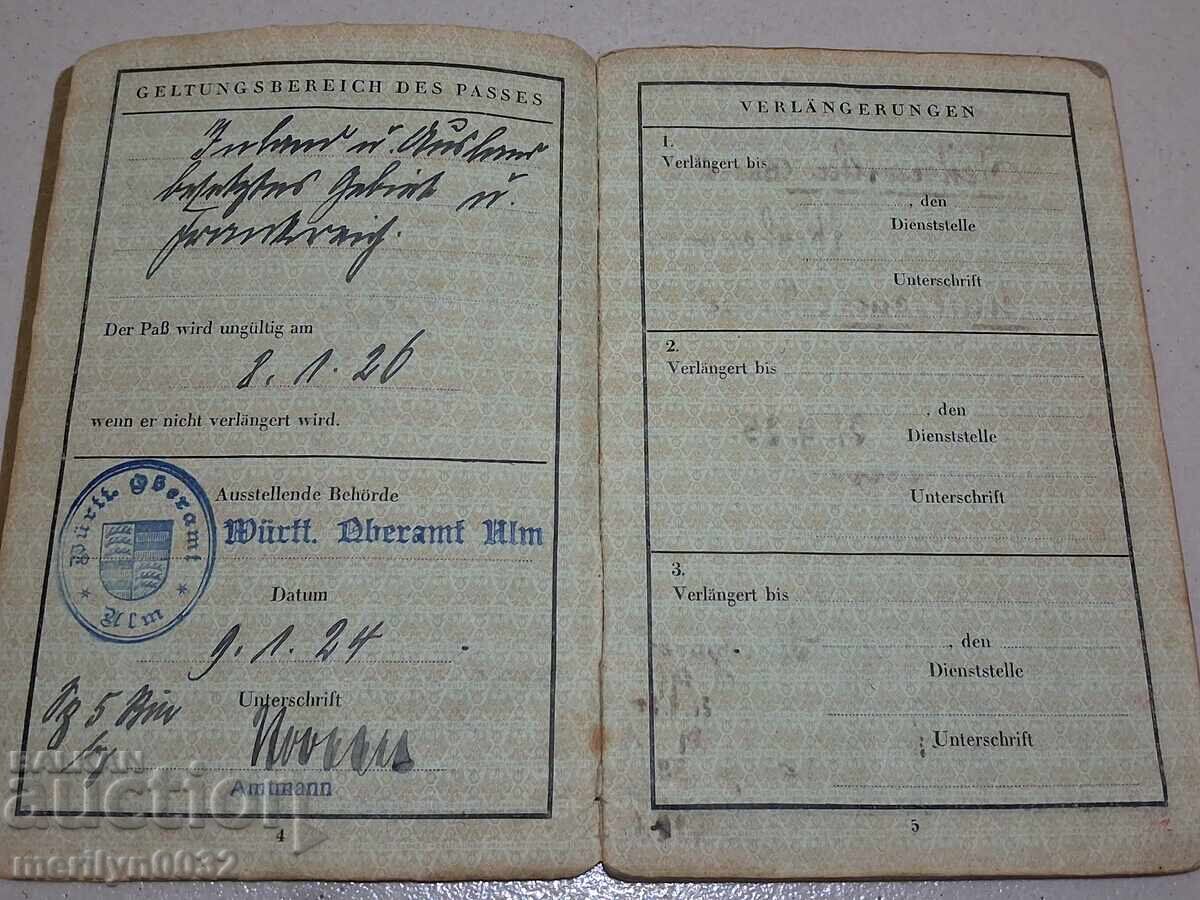 GELTUNGSBEREICH DES PASSES
Inland u. Ausland
besetztes Gebiet u.
Frankreich.
Der Paß wird ungültig am
8.1.26
wenn er nicht verlängert wird.
Ausstellende Behörde
Württ. Oberamt Ulm
Württ. Oberamt
* Ulm *
Datum
9.1.24.
Unterschrift
Amtmann
4
VERLÄNGERUNGEN
1.
Verlängert bis
, den
Dienststelle
Unterschrift
2.
Verlängert bis
, den
Dienststelle
Unterschrift
3.
Verlängert bis
, den
Dienststelle
Unterschrift
5
BALKAN
auction
merilyn0032